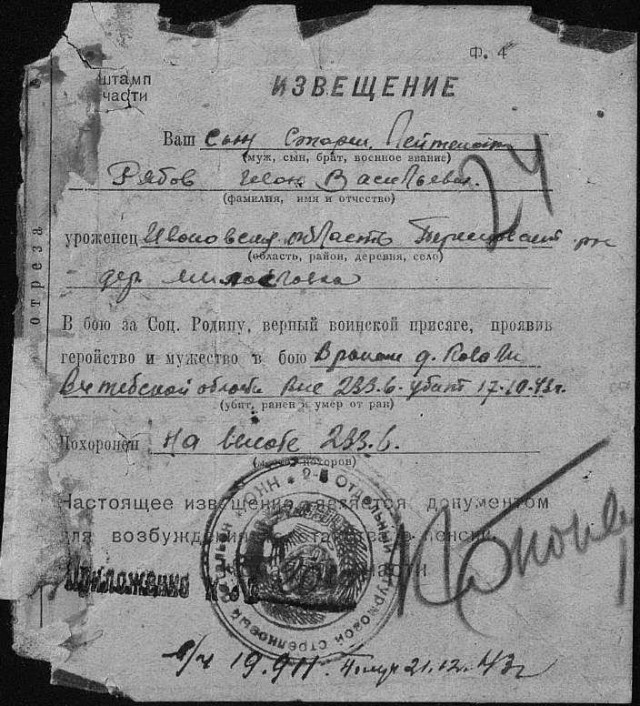 Ф. 4
штамп
части
ИЗВЕЩЕНИЕ
Ваш сын Старш. Лейтенант
(муж, сын, брат, военное звание)
Рябов Иван Васильевич
(фамилия, имя и отчество)
24
уроженец область р-н
(область, район, деревня, село)
дер.
отреза
В бою за Соц. Родину, верный воинской присяге, проявив
геройство и мужество в бою В районе д.
Витебской области выс 233.6. убит 17.10.43 г.
(убит, ранен и умер от ран)
Похоронен На высоте 233.6.
(место похорон)
Настоящее извещение является документом
для возбуждения о пенсии.
Приложение
части
2-й ОТДЕЛЬНЫЙ СТРЕЛКОВЫЙ
в/ч 19.911. 21.12.43 г